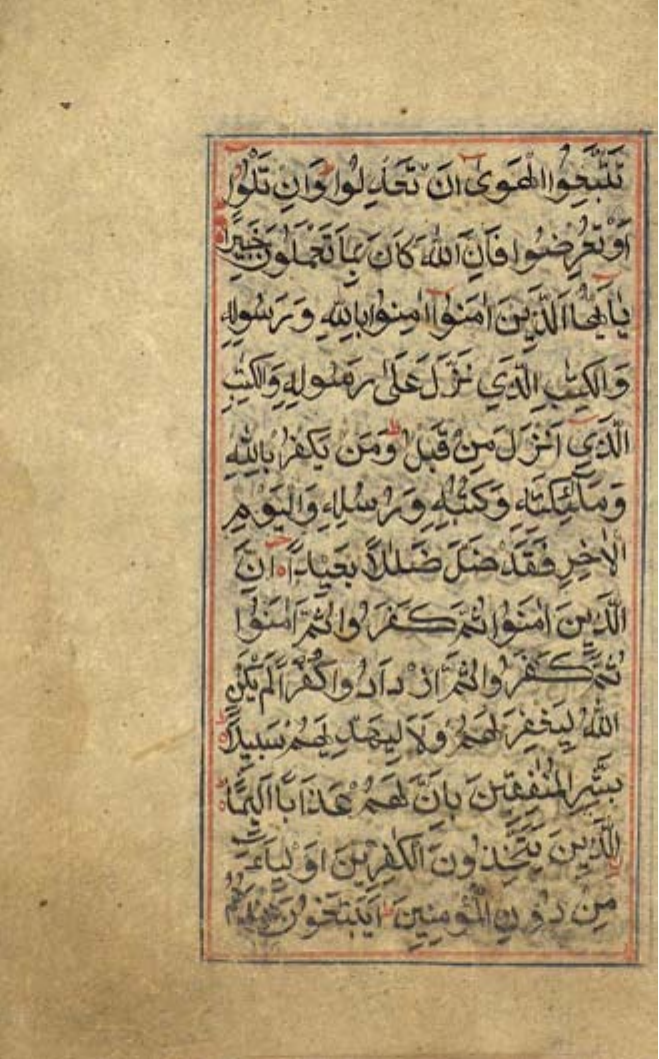 تَتَّبِعُوا الْهَوٰى اَنْ تَعْدِلُوا وَاِنْ تَلْوٗا
اَوْ تُعْرِضُوا فَاِنَّ اللّٰهَ كَانَ بِمَا تَعْمَلُونَ خَبِيرًا
يٰا اَيُّهَا الَّذِينَ اٰمَنُوا اٰمِنُوا بِاللّٰهِ وَرَسُولِهٖ
وَالْكِتٰبِ الَّذِي نَزَّلَ عَلٰى رَسُولِهٖ وَالْكِتٰبِ
الَّذِي اَنْزَلَ مِنْ قَبْلُ ط وَمَنْ يَكْفُرْ بِاللّٰهِ
وَمَلٰٓئِكَتِهٖ وَكُتُبِهٖ وَرُسُلِهٖ وَالْيَوْمِ
الْاٰخِرِ فَقَدْ ضَلَّ ضَلٰلًا بَعِيدًا اِنَّ
الَّذِينَ اٰمَنُوا ثُمَّ كَفَرُوا ثُمَّ اٰمَنُوا
ثُمَّ كَفَرُوا ثُمَّ ازْدَادُوا كُفْرًا لَمْ يَكُنِ
اللّٰهُ لِيَغْفِرَ لَهُمْ وَلَا لِيَهْدِيَهُمْ سَبِيلًا
بَشِّرِ الْمُنٰفِقِينَ بِاَنَّ لَهُمْ عَذَابًا اَلِيمًا
الَّذِينَ يَتَّخِذُونَ الْكٰفِرِينَ اَوْلِيَاءَ
مِنْ دُونِ الْمُؤْمِنِينَ ط اَيَبْتَغُونَ عِنْدَهُمُ